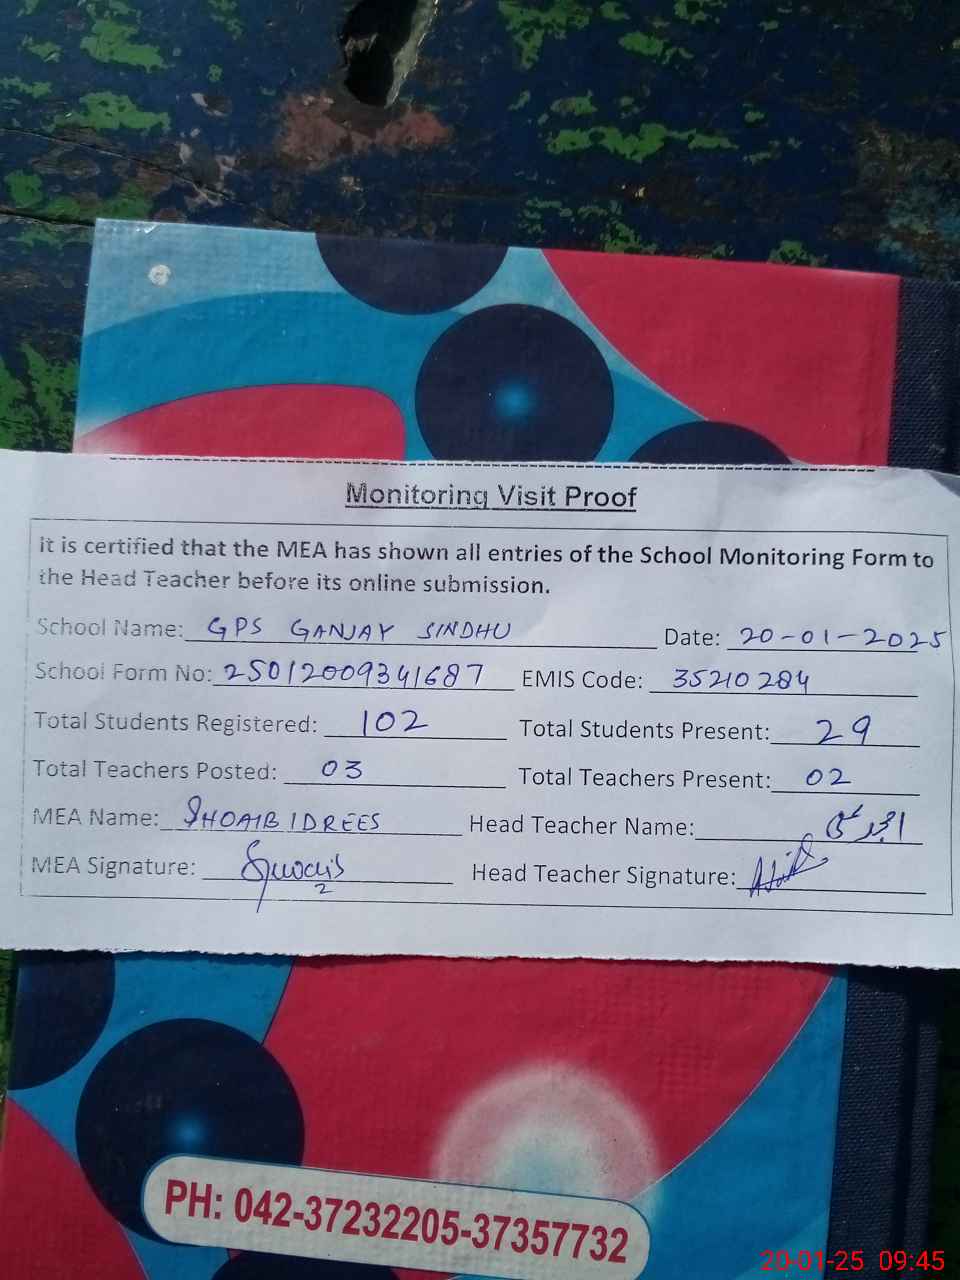 Monitoring Visit Proof
It is certified that the MEA has shown all entries of the School Monitoring Form to
the Head Teacher before its online submission.
School Name: GPS GANJAY SINDHU Date: 20-01-2025
School Form No: 25012009341687 EMIS Code: 35210284
Total Students Registered: 102 Total Students Present: 29
Total Teachers Posted: 03 Total Teachers Present: 02
MEA Name: SHOAIB IDREES Head Teacher Name:
MEA Signature: Head Teacher Signature:
PH: 042-37232205-37357732
20-01-25 09:45